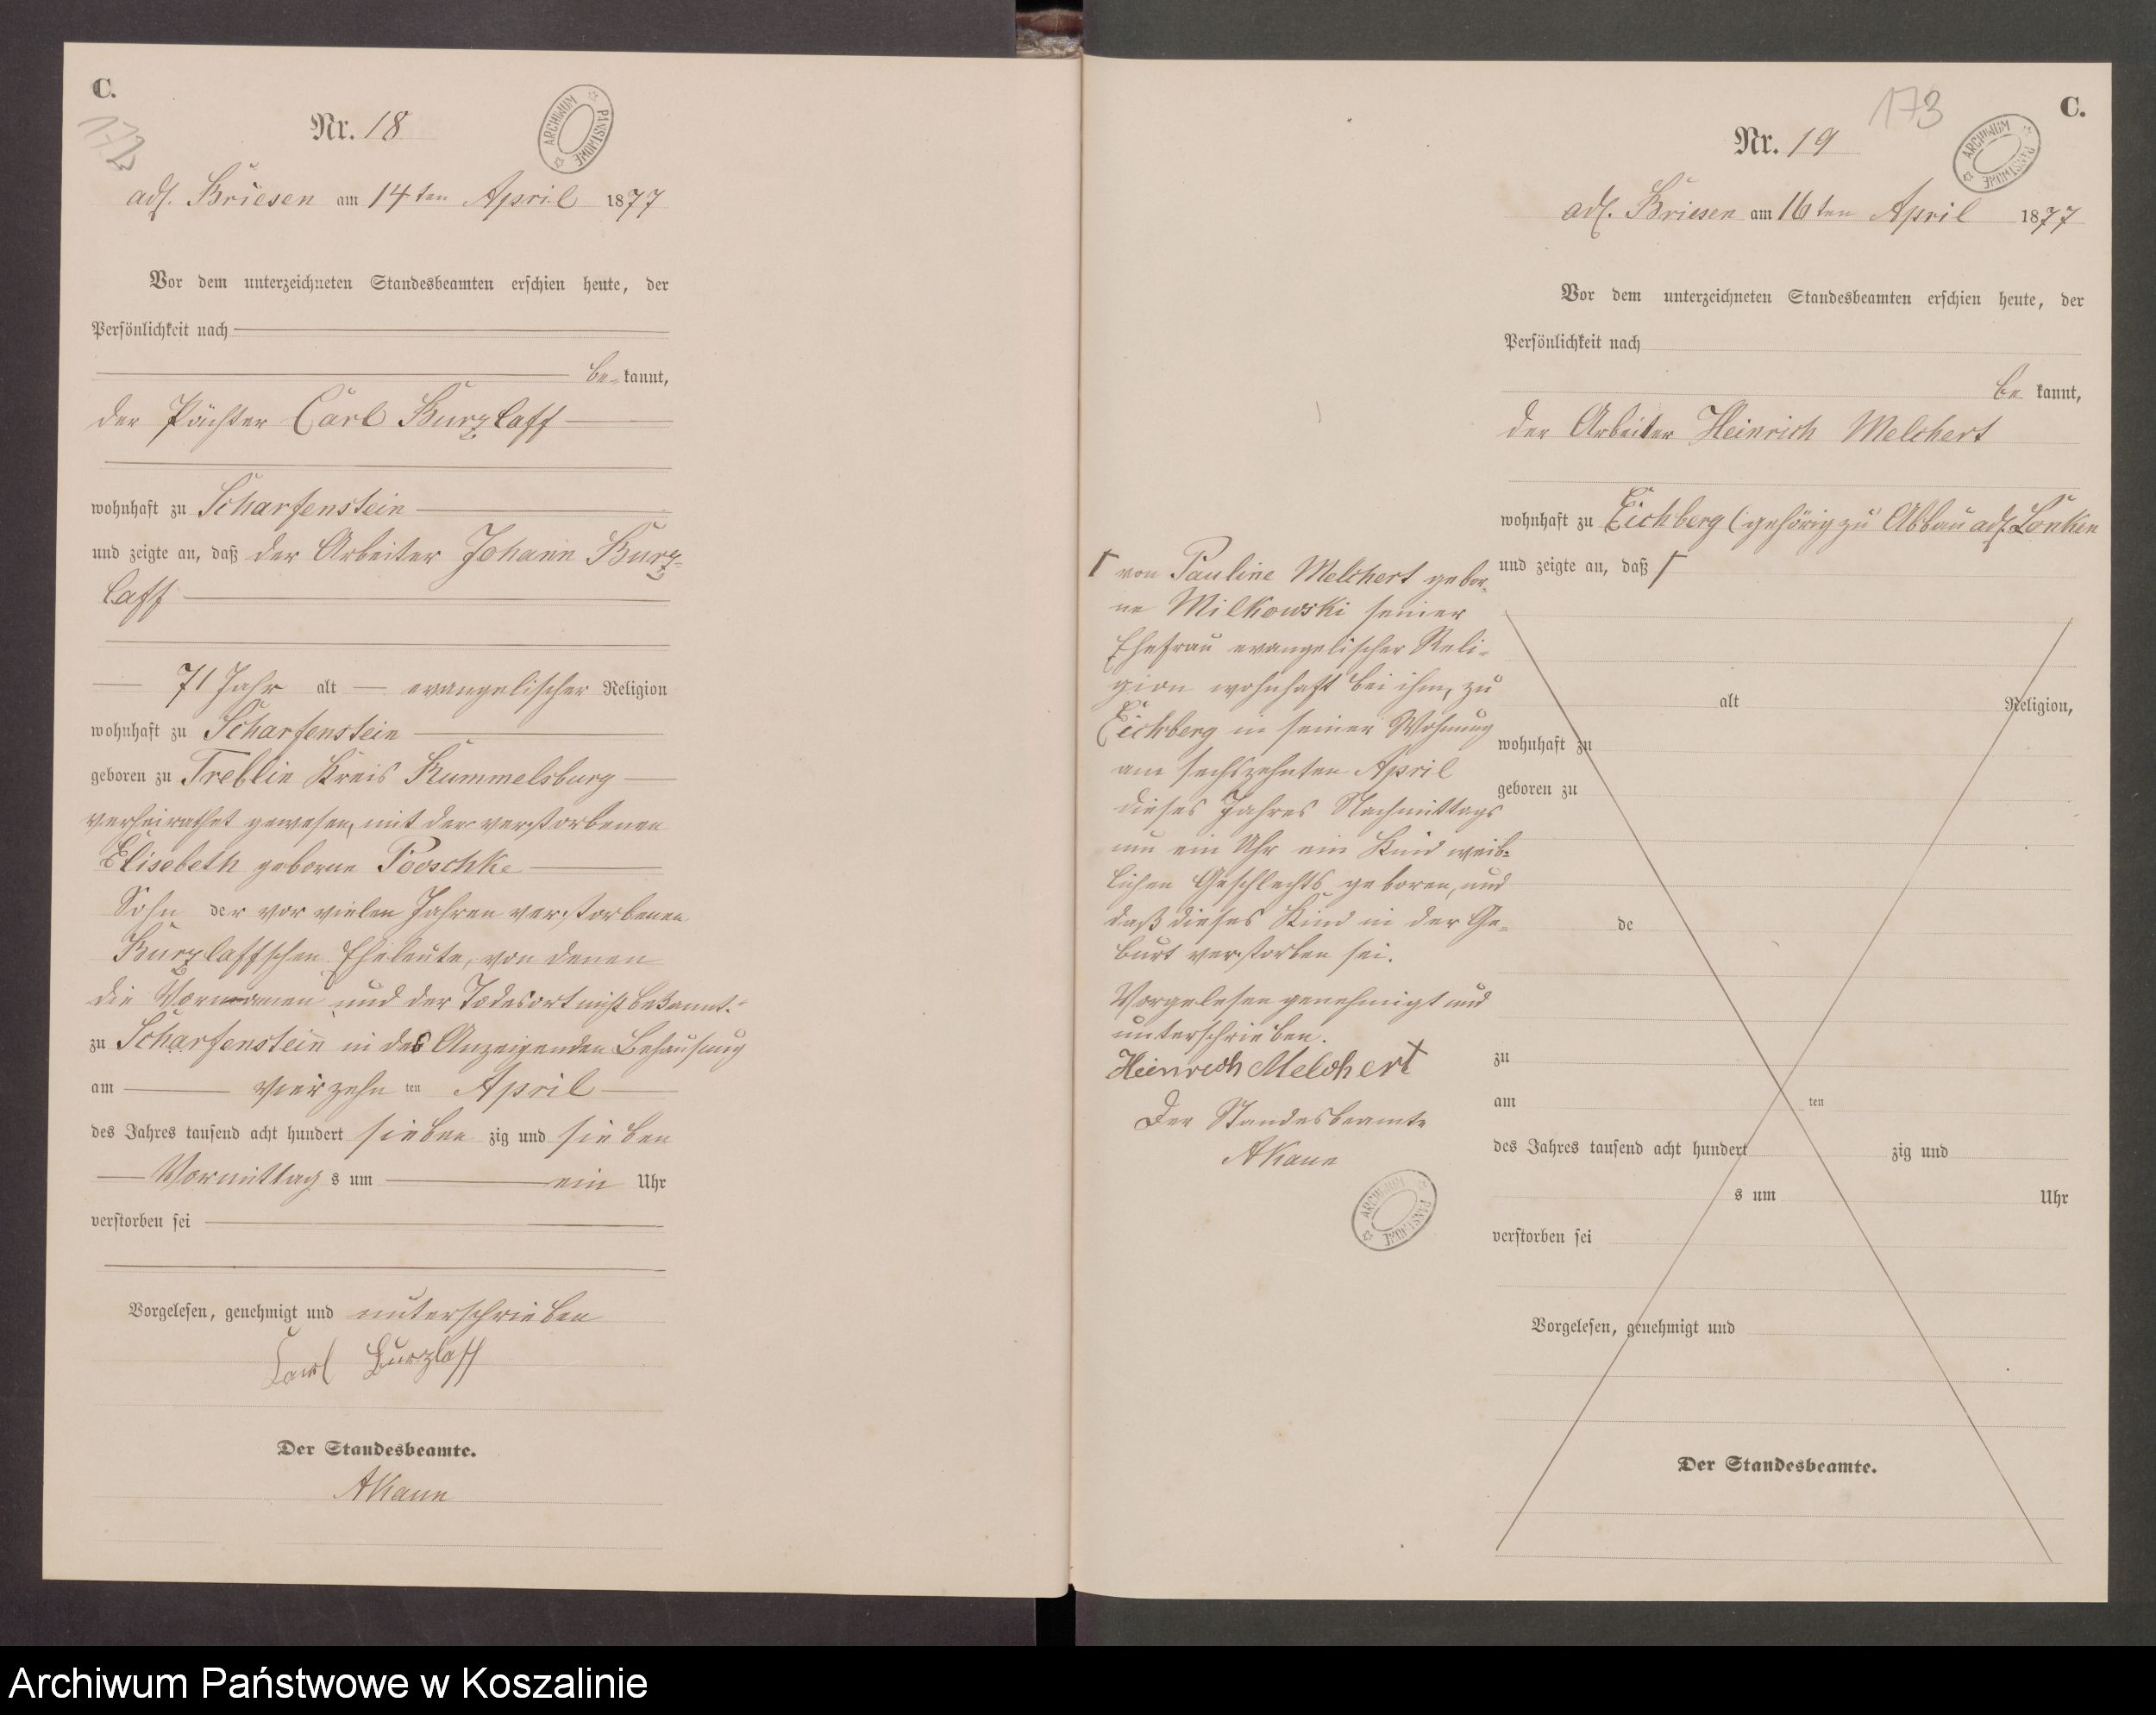 C.
172
Nr. 18
ARCHIWUM PAŃSTWOWE
adl. Briesen am 14ten April 1877
Vor dem unterzeichneten Standesbeamten erschien heute, der
Persönlichkeit nach
be= kannt,
der Pächter Carl Kurzlaff
wohnhaft zu Scharfenstein
und zeigte an, daß der Arbeiter Johann Kurz=
laff
71 Jahr alt evangelischer Religion
wohnhaft zu Scharfenstein
geboren zu Treblin Kreis Rummelsburg
verheirathet gewesen, mit der verstorbenen
Elisebeth geborne Pooschke
Sohn der vor vielen Jahren verstorbenen
Kurzlaffschen Eheleute, von denen
die Vornamen und der Todesort nicht bekannt.
zu Scharfenstein in des Anzeigenden Behausung
am vierzehn ten April
des Jahres tausend acht hundert sieben zig und sieben
Vormittag s um ein Uhr
verstorben sei
Vorgelesen, genehmigt und unterschrieben
Carl Kurzlaff
Der Standesbeamte.
AKann
173
C.
Nr. 19
ARCHIWUM PAŃSTWOWE
adl. Briesen am 16ten April 1877
Vor dem unterzeichneten Standesbeamten erschien heute, der
Persönlichkeit nach
be kannt,
der Arbeiter Heinrich Melchert
wohnhaft zu Eichberg (gehörig zu Abbau adl. Lonken
und zeigte an, daß Γ
Γ von Pauline Melchert gebor=
ne Milkowski seiner
Ehefrau evangelischer Reli=
gion wohnhaft bei ihm, zu
Eichberg in seiner Wohnung
am sechszehnten April
dieses Jahres Nachmittags
um ein Uhr ein Kind weib=
lichen Geschlechts geboren, und
daß dieses Kind in der Ge=
burt verstorben sei.
Vorgelesen genehmigt und
unterschrieben.
Heinrich Melchert
Der Standesbeamte
AKann
ARCHIWUM PAŃSTWOWE
alt Religion,
wohnhaft zu
geboren zu
de
zu
am ten
des Jahres tausend acht hundert zig und
s um Uhr
verstorben sei
Vorgelesen, genehmigt und
Der Standesbeamte.
Archiwum Państwowe w Koszalinie